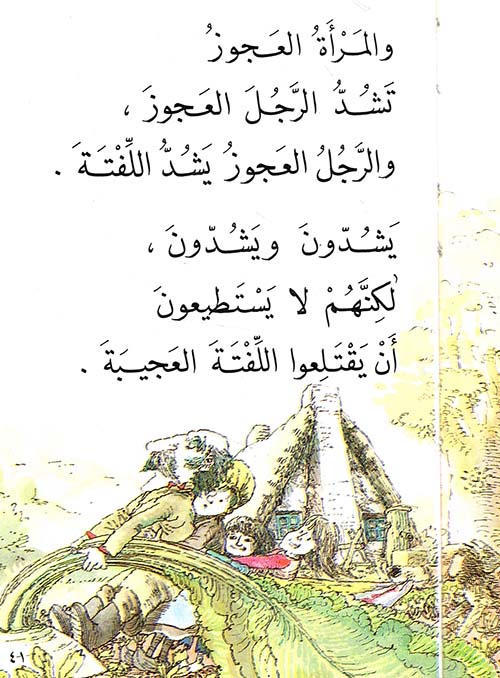 والمَرْأَةُ العَجوزُ
تَشُدُّ الرَّجُلَ العَجوزَ ،
والرَّجُلُ العَجوزُ يَشُدُّ اللِّفْتَةَ .
يَشُدّونَ ويَشُدّونَ ،
لٰكِنَّهُمْ لا يَسْتَطيعونَ
أَنْ يَقْتَلِعوا اللِّفْتَةَ العَجيبَةَ .